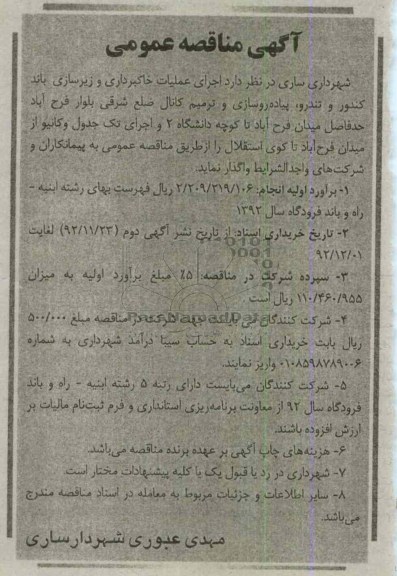 آگهی مناقصه عمومی
شهرداری ساری در نظر دارد اجرای عملیات خاکبرداری و زیرسازی باند
کندور و تندرو، پیاده‌روسازی و ترمیم کانال ضلع شرقی بلوار فرح آباد
حدفاصل میدان فرح آباد تا کوچه دانشگاه ۲ و اجرای تک جدول وکانیو از
میدان فرح‌آباد تا کوی استقلال را ازطریق مناقصه عمومی به پیمانکاران و
شرکت‌های واجدالشرایط واگذار نماید.
۱- برآورد اولیه انجام: ۲/۲۰۹/۲۱۹/۱۰۶ ریال فهرست بهای رشته ابنیه -
راه و باند فرودگاه سال ۱۳۹۲
۲- تاریخ خریداری اسناد: از تاریخ نشر آگهی دوم (۹۲/۱۱/۲۳) لغایت
۹۲/۱۲/۰۱
۳- سپرده شرکت در مناقصه: ۵٪ مبلغ برآورد اولیه به میزان
۱۱۰/۴۶۰/۹۵۵ ریال است
۴- شرکت کنندگان می بایست جهت شرکت در مناقصه مبلغ ۵۰۰/۰۰۰
ریال بابت خریداری اسناد به حساب سیبا درآمد شهرداری به شماره
۰۱۰۸۵۹۸۷۸۹۰۰۶ واریز نمایند.
۵- شرکت کنندگان می‌بایست دارای رتبه ۵ رشته ابنیه - راه و باند
فرودگاه سال ۹۲ از معاونت برنامه‌ریزی استانداری و فرم ثبت‌نام مالیات بر
ارزش افزوده باشند.
۶- هزینه‌های چاپ آگهی بر عهده برنده مناقصه می‌باشد.
۷- شهرداری در رد یا قبول یک یا کلیه پیشنهادات مختار است.
۸- سایر اطلاعات و جزئیات مربوط به معامله در اسناد مناقصه مندرج
می‌باشد.
مهدی عبوری شهردار ساری